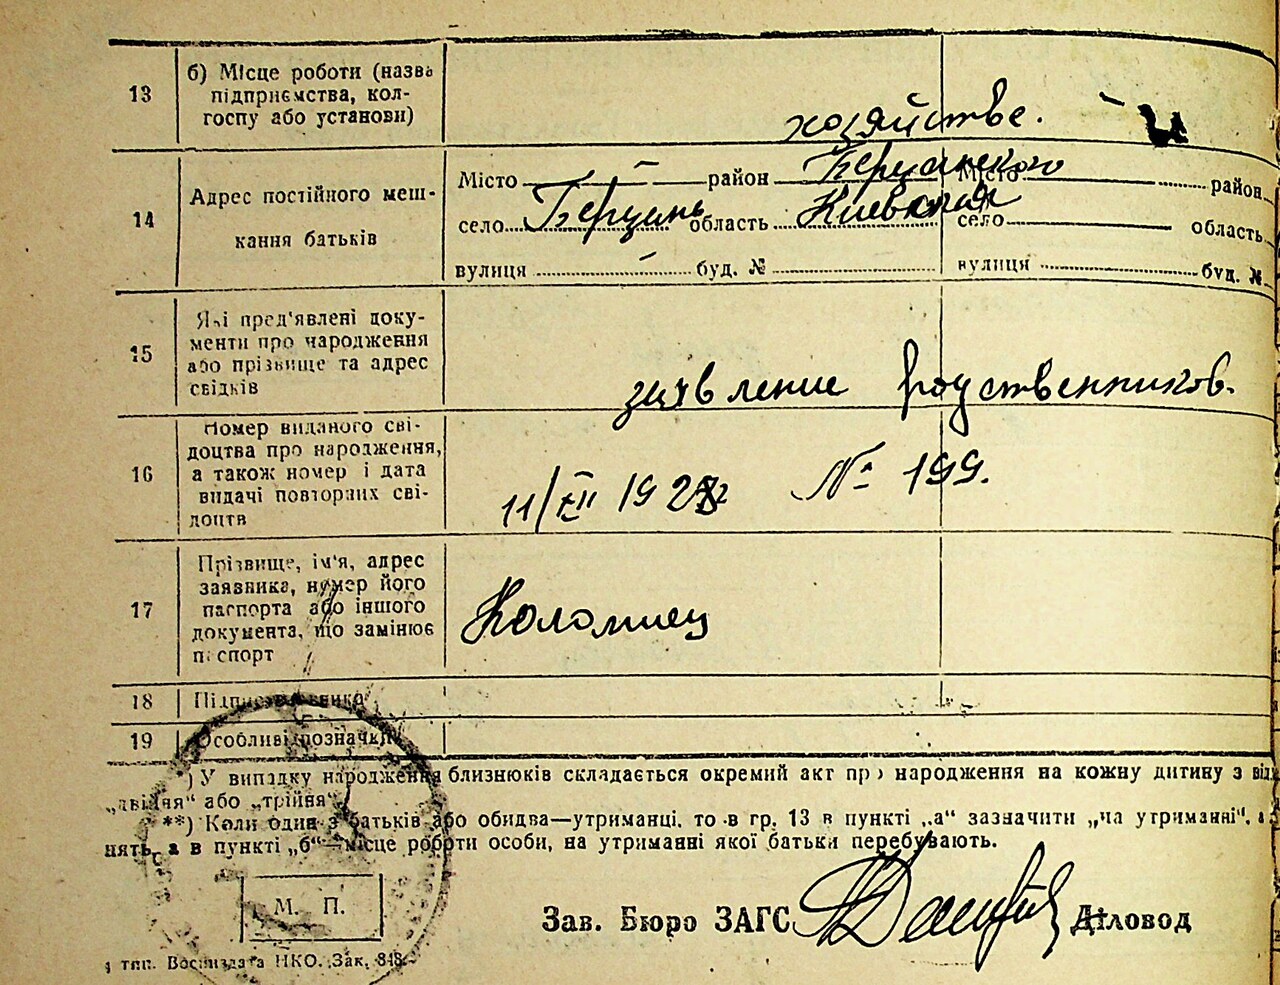 13
б) Місце роботи (назва
підприємства, кол-
госпу або установи)
хозяйстве.
14
Адрес постійного меш-
кання батьків
Місто район Місто район
село область Киевская село область
вулиця буд. № вулиця буд. №
15
Які пред'явлені доку-
менти про народження
або прізвище та адрес
свідків
заявление родственников.
16
Номер виданого сві-
доцтва про народження,
а також номер і дата
видачі повторних сві-
доцтв
11/XII № 199.
17
Прізвище, ім'я, адрес
заявника, номер його
паспорта або іншого
документа, що замінює
паспорт
Коломиец
18
Підпис заявника
19
Особливі позначки
) У випадку народження близнюків складається окремий акт про народження на кожну дитину з
„двійня“ або „трійня“
**) Коли один з батьків або обидва—утриманці, то в гр. 13 в пункті „а“ зазначити „на утриманні“, а
нять, а в пункті „б“—місце роботи особи, на утриманні якої батьки перебувають.
М. П.
Зав. Бюро ЗАГС Діловод
тип. Воениздата НКО. Зак. 848